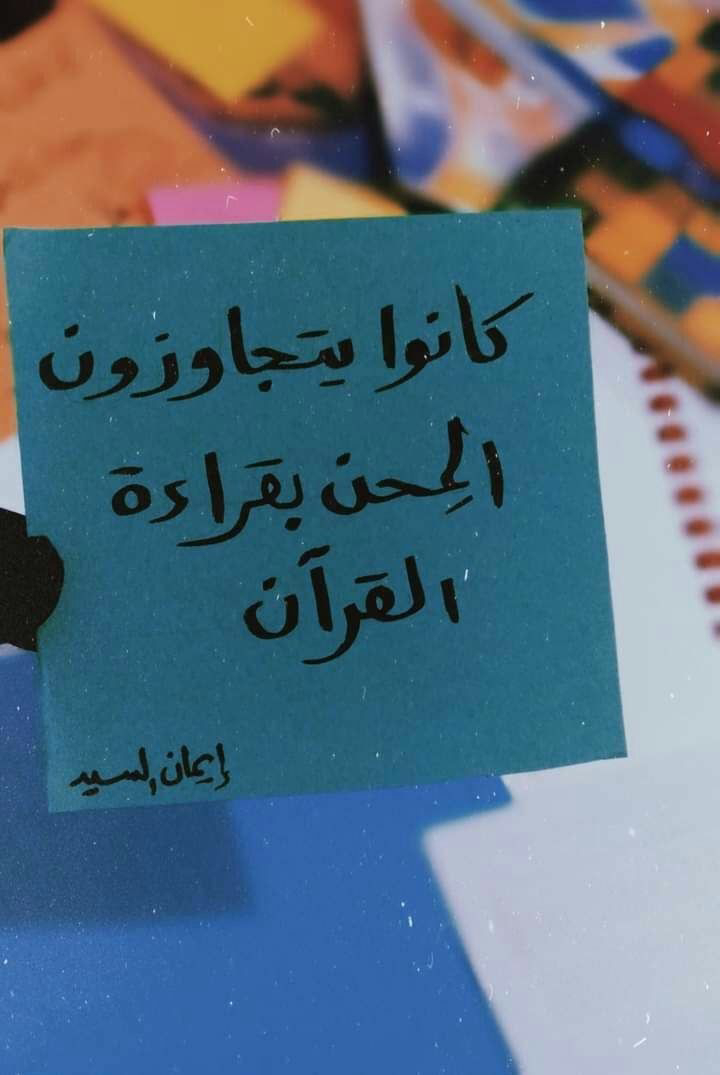 كانوا يتجاوزون
المِحن بقراءة
القرآن
إيمان السيد